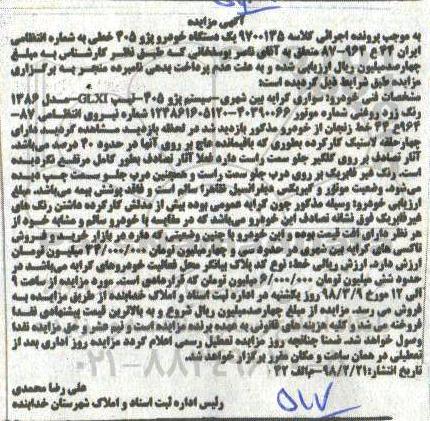 آگهی مزایده
به موجب پرونده اجرائی کلاسه ۹۷۰۰۱۳۵ یک دستگاه خودرو پژو ۴۰۵ خطی به شماره انتظامی
ایران ۴۴ ع ۹۶۴-۸۷ متعلق به آقای ناصر یوسفخانی که طبق نظر کارشناس به مبلغ
چهارصد میلیون ریال ارزیابی شده و به علت عدم پرداخت بدهی نامبرده منجر به برگزاری
مزایده طی شرایط ذیل گردیده است:
مشخصات فنی خودرو: سواری کرایه بین شهری-سیستم پژو ۴۰۵-تیپ GLXI-مدل ۱۳۸۶
رنگ زرد روغنی شماره موتور ۱۲۴۸۶۱۶۵۱۲۰-۴۰۳۹۰۰۶۶ شماره نیروی انتظامی ۸۷-
۹۶۴ع۴۴ خط زنجان از خودرو مذکور بازدید شد در لحظه بازدید مشاهده گردید دارای
چهار حلقه لاستیک کارکرده بطوری که باقیمانده عاج بر روی آنها در حدود ۴۰ درصد می‌باشد.
آثار تصادف بر روی گلگیر جلو سمت راست دارد فعلا آثار تصادف بطور کامل مرتفع نگردیده
است. رنگ غیر فابریک بر روی درب جلو سمت راست و همچنین درب جلو سمت چپ دیده
می‌شود. وضعیت موتور و گیربکس دیفرانسیل ظاهرا سالم است و فاقد پوشش بیمه می‌باشد.
ارزیابی خودرو: وسیله مذکور چون کرایه عمومی بوده بیش از حدش کارکرده داشتن رنگ های
غیر فابریک فوق نشانه تصادف این خودرو می‌باشد که در مقایسه با خودرو سالم و مشابه خود از
در نظر دارای افت قیمت بوده و این خودرو با چنین وضعیتی که دارد در بازار خرید و فروش
تاکسی های کرایه ای حدود سی و چهار میلیون تومان ۳۴/۰۰۰/۰۰۰ میلیون تومان
ارزش دارد. ارزش ریالی خط: نوع که پلاک بیانگر خط فعالیت خودروهای کرایه می‌باشد در
حدود شش میلیون تومان ۶/۰۰۰/۰۰۰ تومان که قرار دادی است. مورد مزایده از ساعت ۹
الی ۱۲ مورخ ۹۸/۳/۹ روز یکشنبه در اداره ثبت اسناد و املاک خدابنده از طریق مزایده به
فروش می رسد. مزایده از مبلغ چهارصد میلیون ریال شروع و به بالاترین قیمت پیشنهادی نقدا
فروخته می شود و کلیه هزینه های قانونی به عهده برنده مزایده است و نیم عشر و حق مزایده نقدا
وصول خواهد شد. ضمنا چنانچه روز مزایده تعطیل رسمی اعلام گردد مزایده روز اداری بعد از
تعطیلی در همان ساعت و مکان مقرر برگزار خواهد شد.
تاریخ انتشار: ۹۸/۲/۲۱-م الف ۴۲
علی رضا محمدی
رئیس اداره ثبت اسناد و املاک شهرستان خدابنده